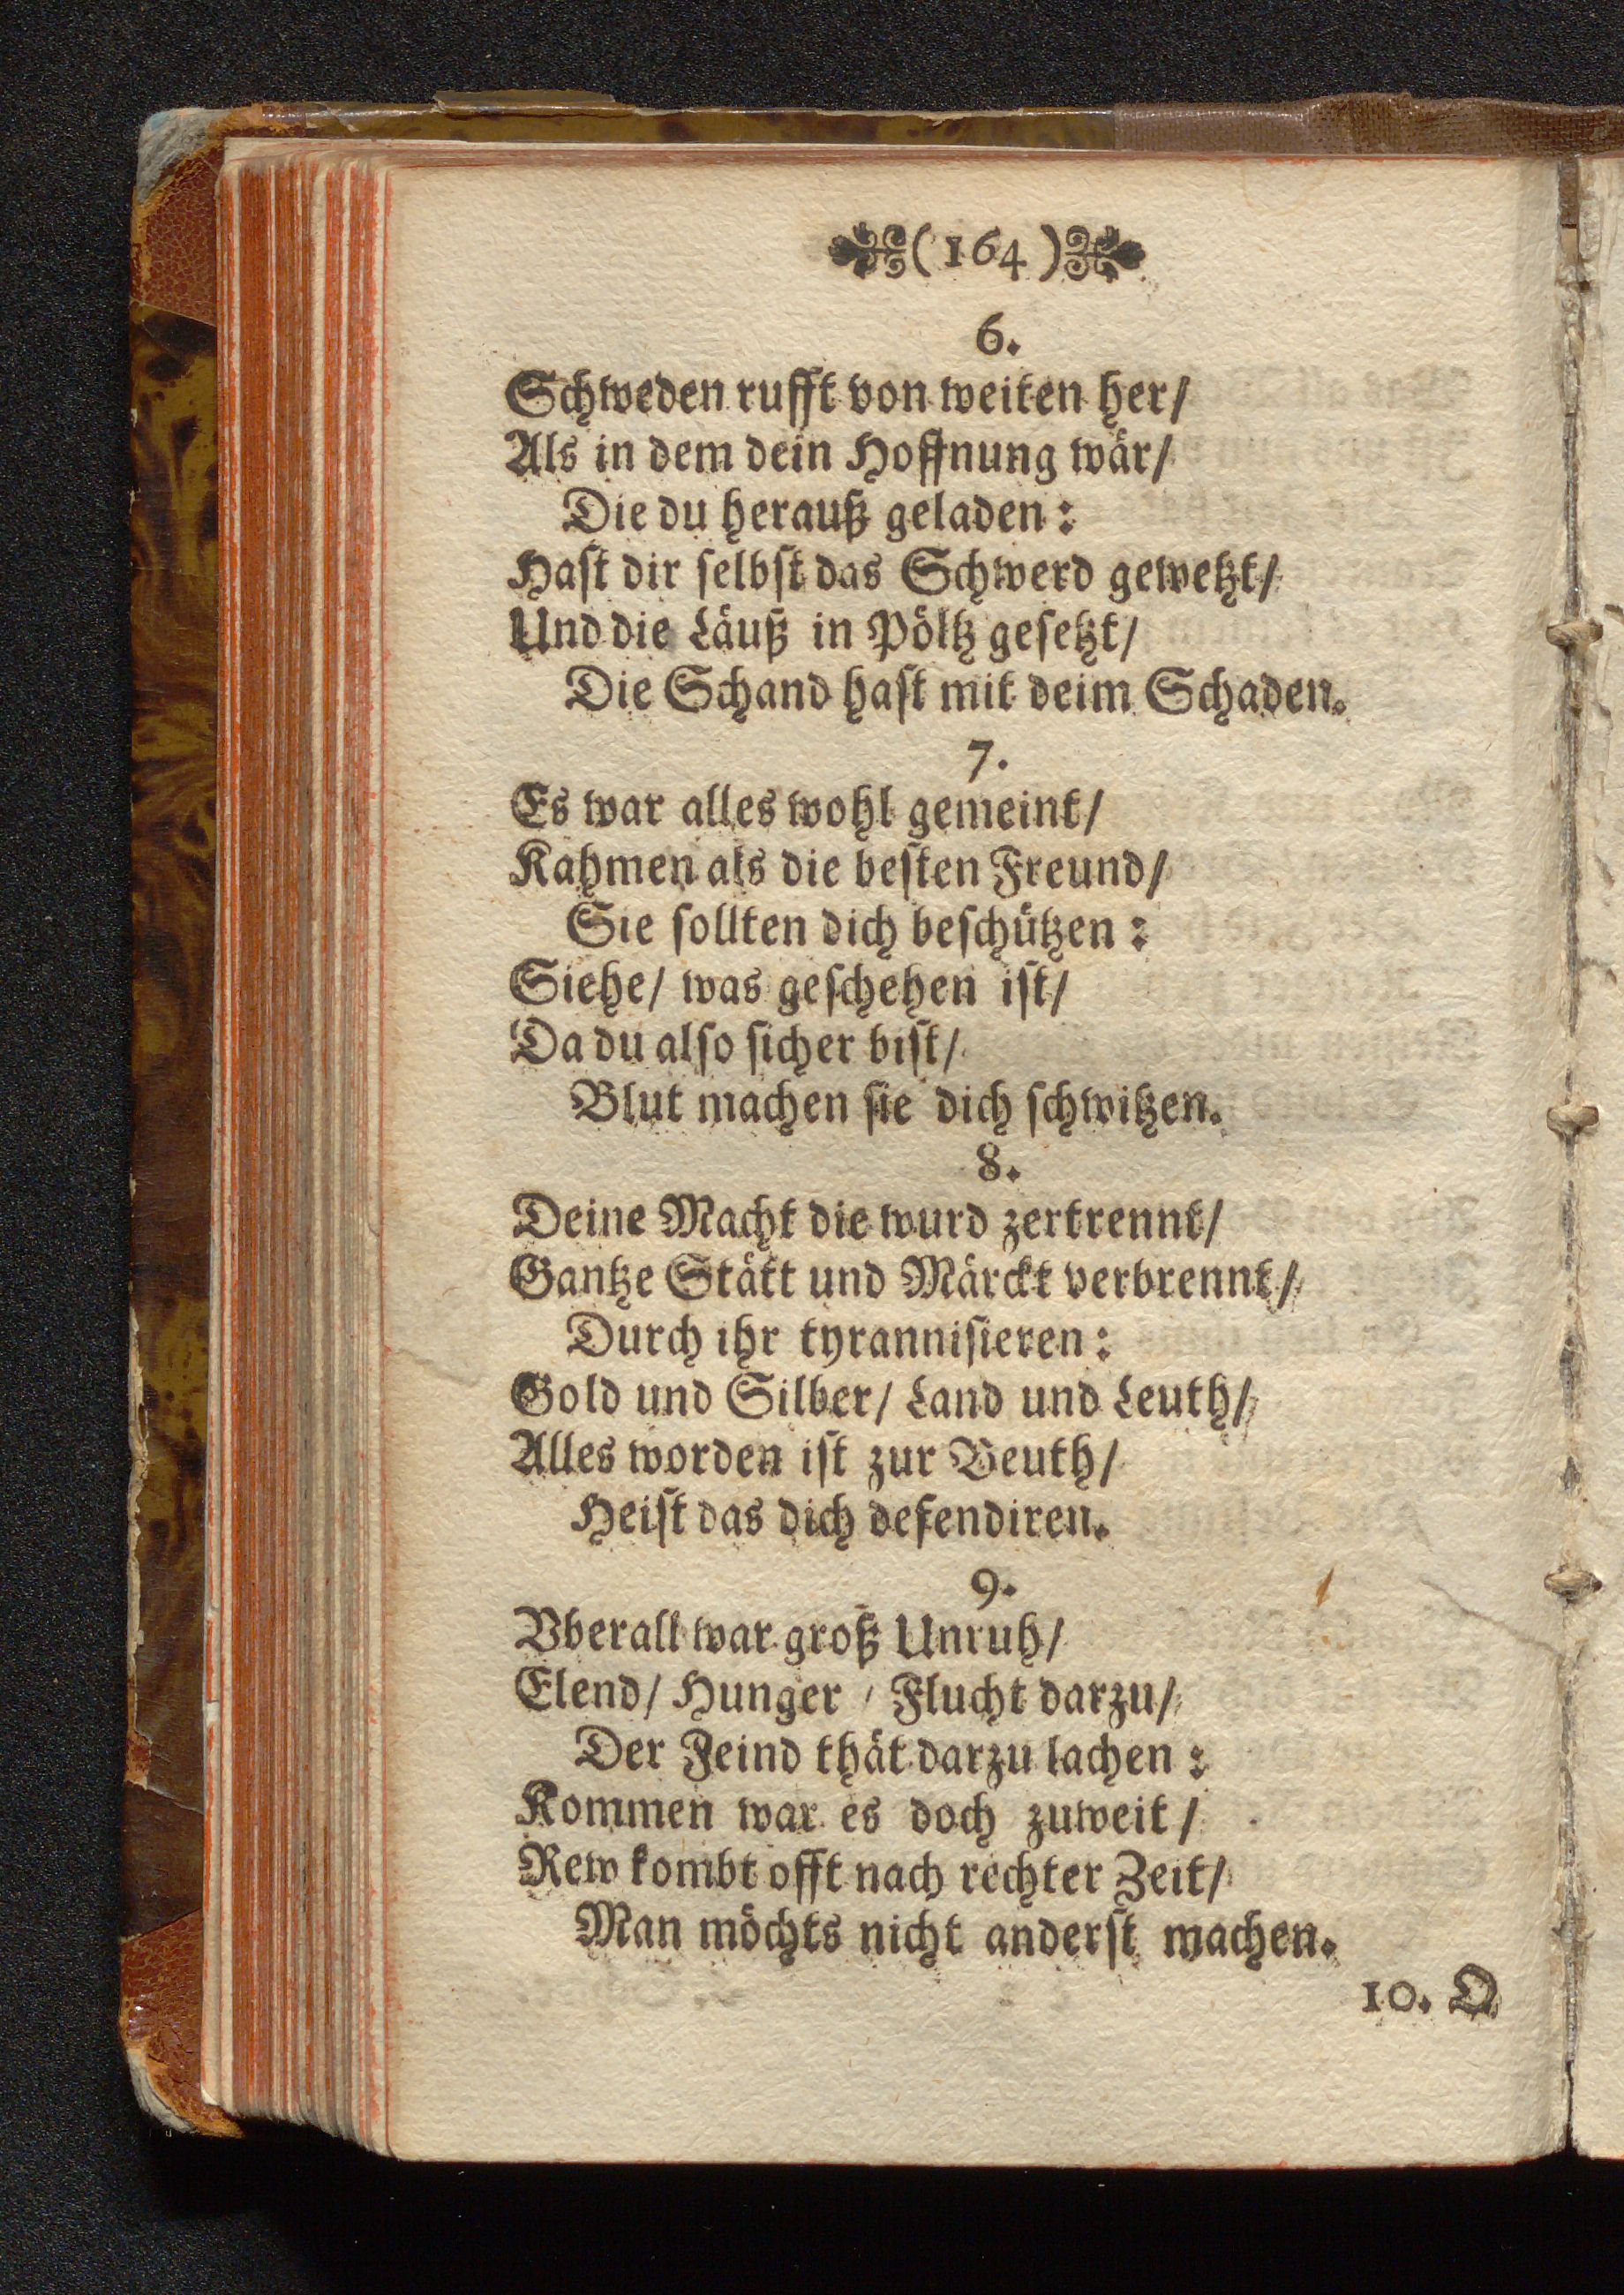 (164)
6.
Schweden rufft von weiten her/
Als in dem dein Hoffnung wär/
Die du herauß geladen:
Hast dir selbst das Schwerd gewetzt/
Und die Läuß in Pöltz gesetzt/
Die Schand hast mit deim Schaden.
7.
Es war alles wohl gemeint/
Kahmen als die besten Freund/
Sie sollten dich beschützen:
Siehe/ was geschehen ist/
Da du also sicher bist/
Blut machen sie dich schwitzen.
8.
Deine Macht die wurd zertrennt/
Gantze Stätt und Märckt verbrennt/
Durch ihr tyrannisieren:
Gold und Silber/ Land und Leuth/
Alles worden ist zur Beuth/
Heist das dich defendiren.
9.
Vberall war groß Unruh/
Elend/ Hunger / Flucht darzu/
Der Feind thät darzu lachen:
Kommen war es doch zuweit/
Rew kombt offt nach rechter Zeit/
Man möchts nicht anderst machen.
10. O